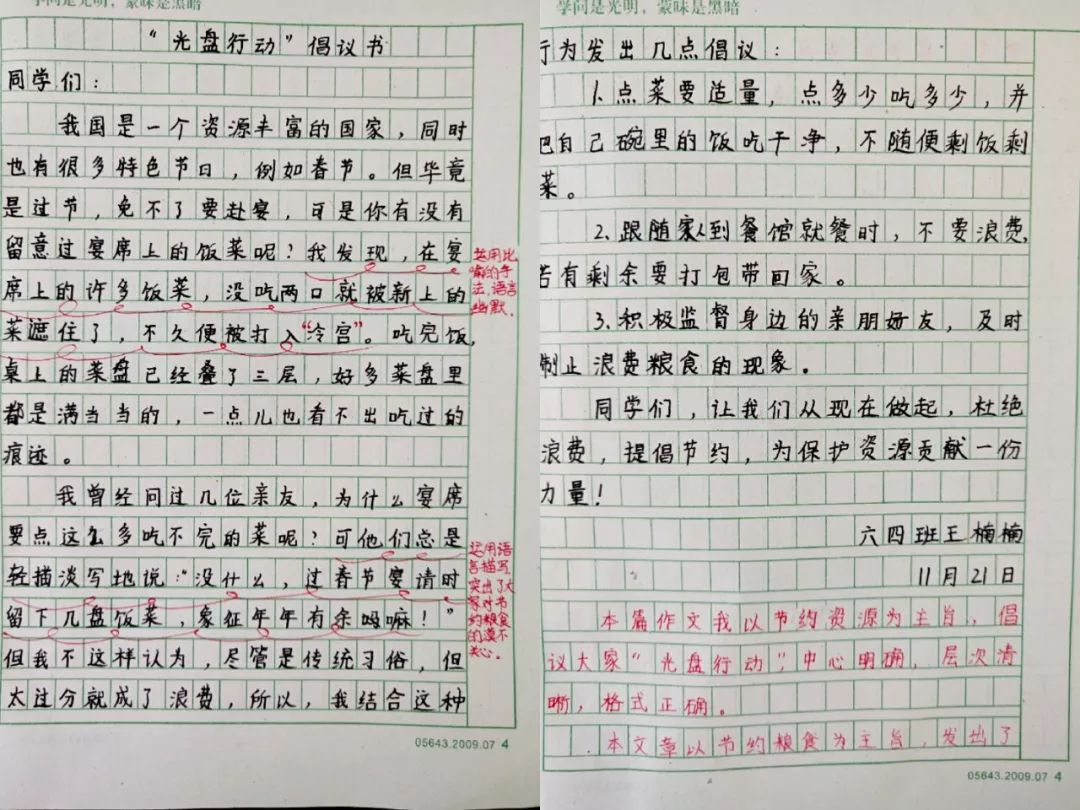 学问是光明，蒙昧是黑暗
“光盘行动”倡议书
同学们：
我国是一个资源丰富的国家，同时
也有很多特色节日，例如春节。但毕竟
是过节，免不了要赴宴，可是你有没有
留意过宴席上的饭菜呢？我发现，在宴
席上的许多饭菜，没吃两口就被新上的
菜遮住了，不久便被打入“冷宫”。吃完饭，
桌上的菜盘已经叠了三层，好多菜盘里
都是满当当的，一点儿也看不出吃过的
痕迹。
我曾经问过几位亲友，为什么宴席
要点这么多吃不完的菜呢？可他们总是
轻描淡写地说：“没什么，过春节宴请时
留下几盘饭菜，象征年年有余吗嘛！”
但我不这样认为，尽管是传统习俗，但
太过分就成了浪费，所以，我结合这种
运用比
喻的手
法，语言
幽默。
运用语
言描写，
突出了大
家对节
约粮食
的漠不
关心。
05643.2009.07 4
学问是光明，蒙昧是黑暗
行为发出几点倡议：
1.点菜要适量，点多少吃多少，并
把自己碗里的饭吃干净，不随便剩饭剩
菜。
2.跟随家人到餐馆就餐时，不要浪费，
若有剩余要打包带回家。
3.积极监督身边的亲朋好友，及时
制止浪费粮食的现象。
同学们，让我们从现在做起，杜绝
浪费，提倡节约，为保护资源贡献一份
力量！
六四班王楠楠
11月21日
本篇作文我以节约资源为主旨，倡
议大家“光盘行动”，中心明确，层次清
晰，格式正确。
本文章以节约粮食为主旨，发出了
05643.2009.07 4